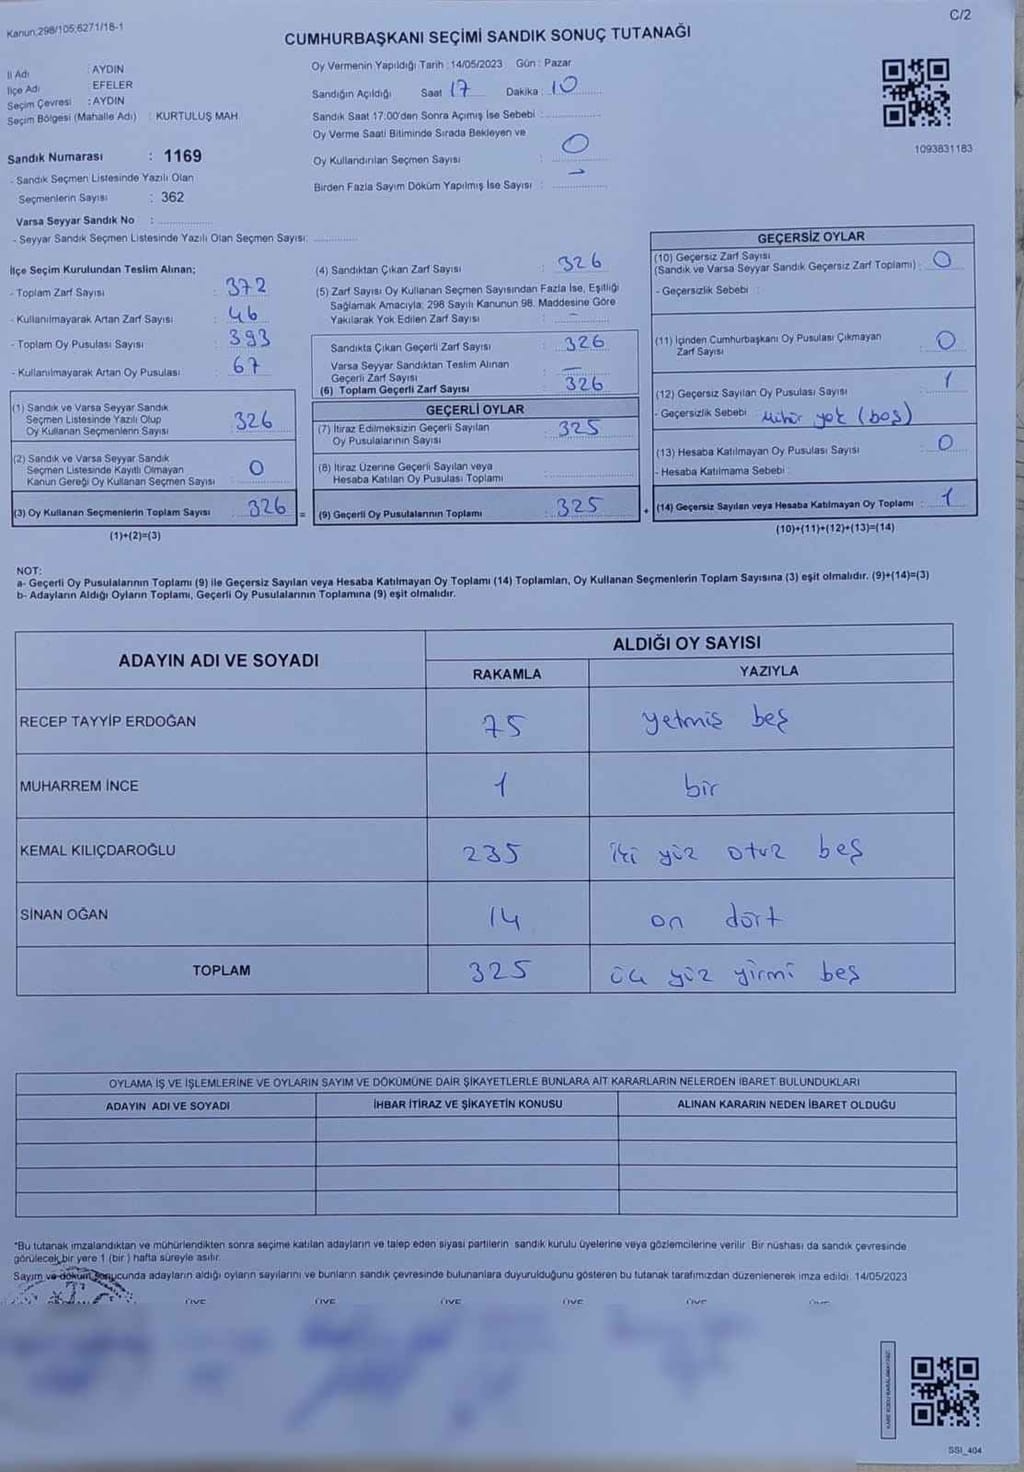 Kanun;298/105;6271/18-1
C/2
CUMHURBAŞKANI SEÇİMİ SANDIK SONUÇ TUTANAĞI
İl Adı : AYDIN
İlçe Adı : EFELER
Seçim Çevresi : AYDIN
Seçim Bölgesi (Mahalle Adı) : KURTULUŞ MAH
Oy Vermenin Yapıldığı Tarih : 14/05/2023 Gün : Pazar
Sandığın Açıldığı Saat 17 Dakika : 10
Sandık Saat 17:00'den Sonra Açımış İse Sebebi :
Oy Verme Saati Bitiminde Sırada Bekleyen ve
Oy Kullandırılan Seçmen Sayısı : 0
Birden Fazla Sayım Döküm Yapılmış İse Sayısı : -
1093831183
Sandık Numarası : 1169
- Sandık Seçmen Listesinde Yazılı Olan
Seçmenlerin Sayısı : 362
Varsa Seyyar Sandık No :
- Seyyar Sandık Seçmen Listesinde Yazılı Olan Seçmen Sayısı:
İlçe Seçim Kurulundan Teslim Alınan;
- Toplam Zarf Sayısı : 372
- Kullanılmayarak Artan Zarf Sayısı : 46
- Toplam Oy Pusulası Sayısı : 393
- Kullanılmayarak Artan Oy Pusulası : 67
(1) Sandık ve Varsa Seyyar Sandık
Seçmen Listesinde Yazılı Olup
Oy Kullanan Seçmenlerin Sayısı 326
(2) Sandık ve Varsa Seyyar Sandık
Seçmen Listesinde Kayıtlı Olmayan
Kanun Gereği Oy Kullanan Seçmen Sayısı 0
(3) Oy Kullanan Seçmenlerin Toplam Sayısı : 326 =
(1)+(2)=(3)
(4) Sandıktan Çıkan Zarf Sayısı : 326
(5) Zarf Sayısı Oy Kullanan Seçmen Sayısından Fazla İse, Eşitliği
Sağlamak Amacıyla; 298 Sayılı Kanunun 98. Maddesine Göre
Yakılarak Yok Edilen Zarf Sayısı : -
Sandıkta Çıkan Geçerli Zarf Sayısı : 326
Varsa Seyyar Sandıktan Teslim Alınan
Geçerli Zarf Sayısı : -
(6) Toplam Geçerli Zarf Sayısı 326
GEÇERLİ OYLAR
(7) İtiraz Edilmeksizin Geçerli Sayılan
Oy Pusulalarının Sayısı : 325
(8) İtiraz Üzerine Geçerli Sayılan veya
Hesaba Katılan Oy Pusulası Toplamı
(9) Geçerli Oy Pusulalarının Toplamı : 325 +
GEÇERSİZ OYLAR
(10) Geçersiz Zarf Sayısı
(Sandık ve Varsa Seyyar Sandık Geçersiz Zarf Toplamı) : 0
- Geçersizlik Sebebi :
(11) İçinden Cumhurbaşkanı Oy Pusulası Çıkmayan
Zarf Sayısı 0
(12) Geçersiz Sayılan Oy Pusulası Sayısı : 1
- Geçersizlik Sebebi : Mühür yok (boş)
(13) Hesaba Katılmayan Oy Pusulası Sayısı : 0
- Hesaba Katılmama Sebebi :
(14) Geçersiz Sayılan veya Hesaba Katılmayan Oy Toplamı : 1
(10)+(11)+(12)+(13)=(14)
NOT:
a- Geçerli Oy Pusulalarının Toplamı (9) ile Geçersiz Sayılan veya Hesaba Katılmayan Oy Toplamı (14) Toplamları, Oy Kullanan Seçmenlerin Toplam Sayısına (3) eşit olmalıdır. (9)+(14)=(3)
b- Adayların Aldığı Oyların Toplamı, Geçerli Oy Pusulalarının Toplamına (9) eşit olmalıdır.
ADAYIN ADI VE SOYADI
ALDIĞI OY SAYISI
RAKAMLA YAZIYLA
RECEP TAYYİP ERDOĞAN 75 yetmiş beş
MUHARREM İNCE 1 bir
KEMAL KILIÇDAROĞLU 235 iki yüz otuz beş
SİNAN OĞAN 14 on dört
TOPLAM 325 üç yüz yirmi beş
OYLAMA İŞ VE İŞLEMLERİNE VE OYLARIN SAYIM VE DÖKÜMÜNE DAİR ŞİKAYETLERLE BUNLARA AİT KARARLARIN NELERDEN İBARET BULUNDUKLARI
ADAYIN ADI VE SOYADI İHBAR İTİRAZ VE ŞİKAYETİN KONUSU ALINAN KARARIN NEDEN İBARET OLDUĞU
*Bu tutanak imzalandıktan ve mühürlendikten sonra seçime katılan adayların ve talep eden siyasi partilerin sandık kurulu üyelerine veya gözlemcilerine verilir. Bir nüshası da sandık çevresinde
görülecek bir yere 1 (bir ) hafta süreyle asılır.
Sayım ve döküm sonucunda adayların aldığı oyların sayılarını ve bunların sandık çevresinde bulunanlara duyurulduğunu gösteren bu tutanak tarafımızdan düzenlenerek imza edildi. 14/05/2023
ÜYE ÜYE ÜYE ÜYE ÜYE
SSI_404